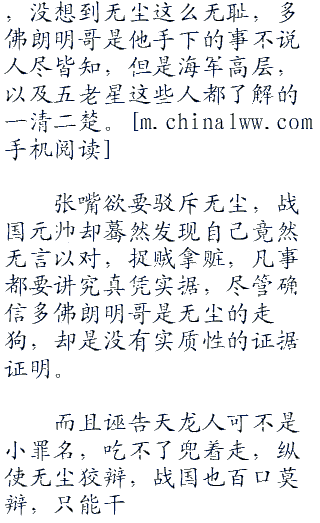 ，没想到无尘这么无耻，多
佛朗明哥是他手下的事不说
人尽皆知，但是海军高层，
以及五老星这些人都了解的
一清二楚。[m.china1ww.com
手机阅读]
张嘴欲要驳斥无尘，战
国元帅却蓦然发现自己竟然
无言以对，捉贼拿赃，凡事
都要讲究真凭实据，尽管确
信多佛朗明哥是无尘的走
狗，却是没有实质性的证据
证明。
而且诬告天龙人可不是
小罪名，吃不了兜着走，纵
使无尘狡辩，战国也百口莫
辩，只能干